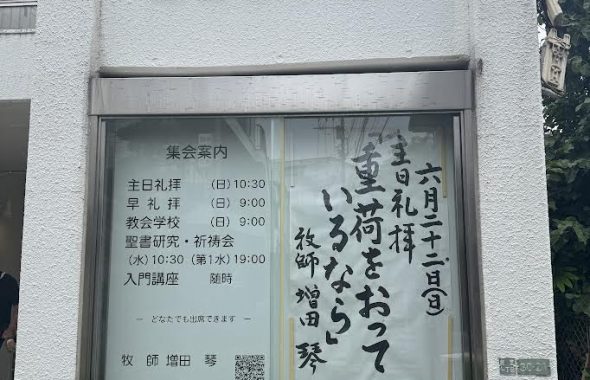 集会案内
主日礼拝 (日) 10:30
早礼拝 (日) 9:00
教会学校 (日) 9:00
聖書研究・祈祷会
(水) 10:30 (第1水) 19:00
入門講座 随時
― どなたでも出席できます ―
牧師 増田 琴
六月二十二日(日)
主日礼拝
「重荷をおって
いるなら」
牧師 増田 琴
30-21